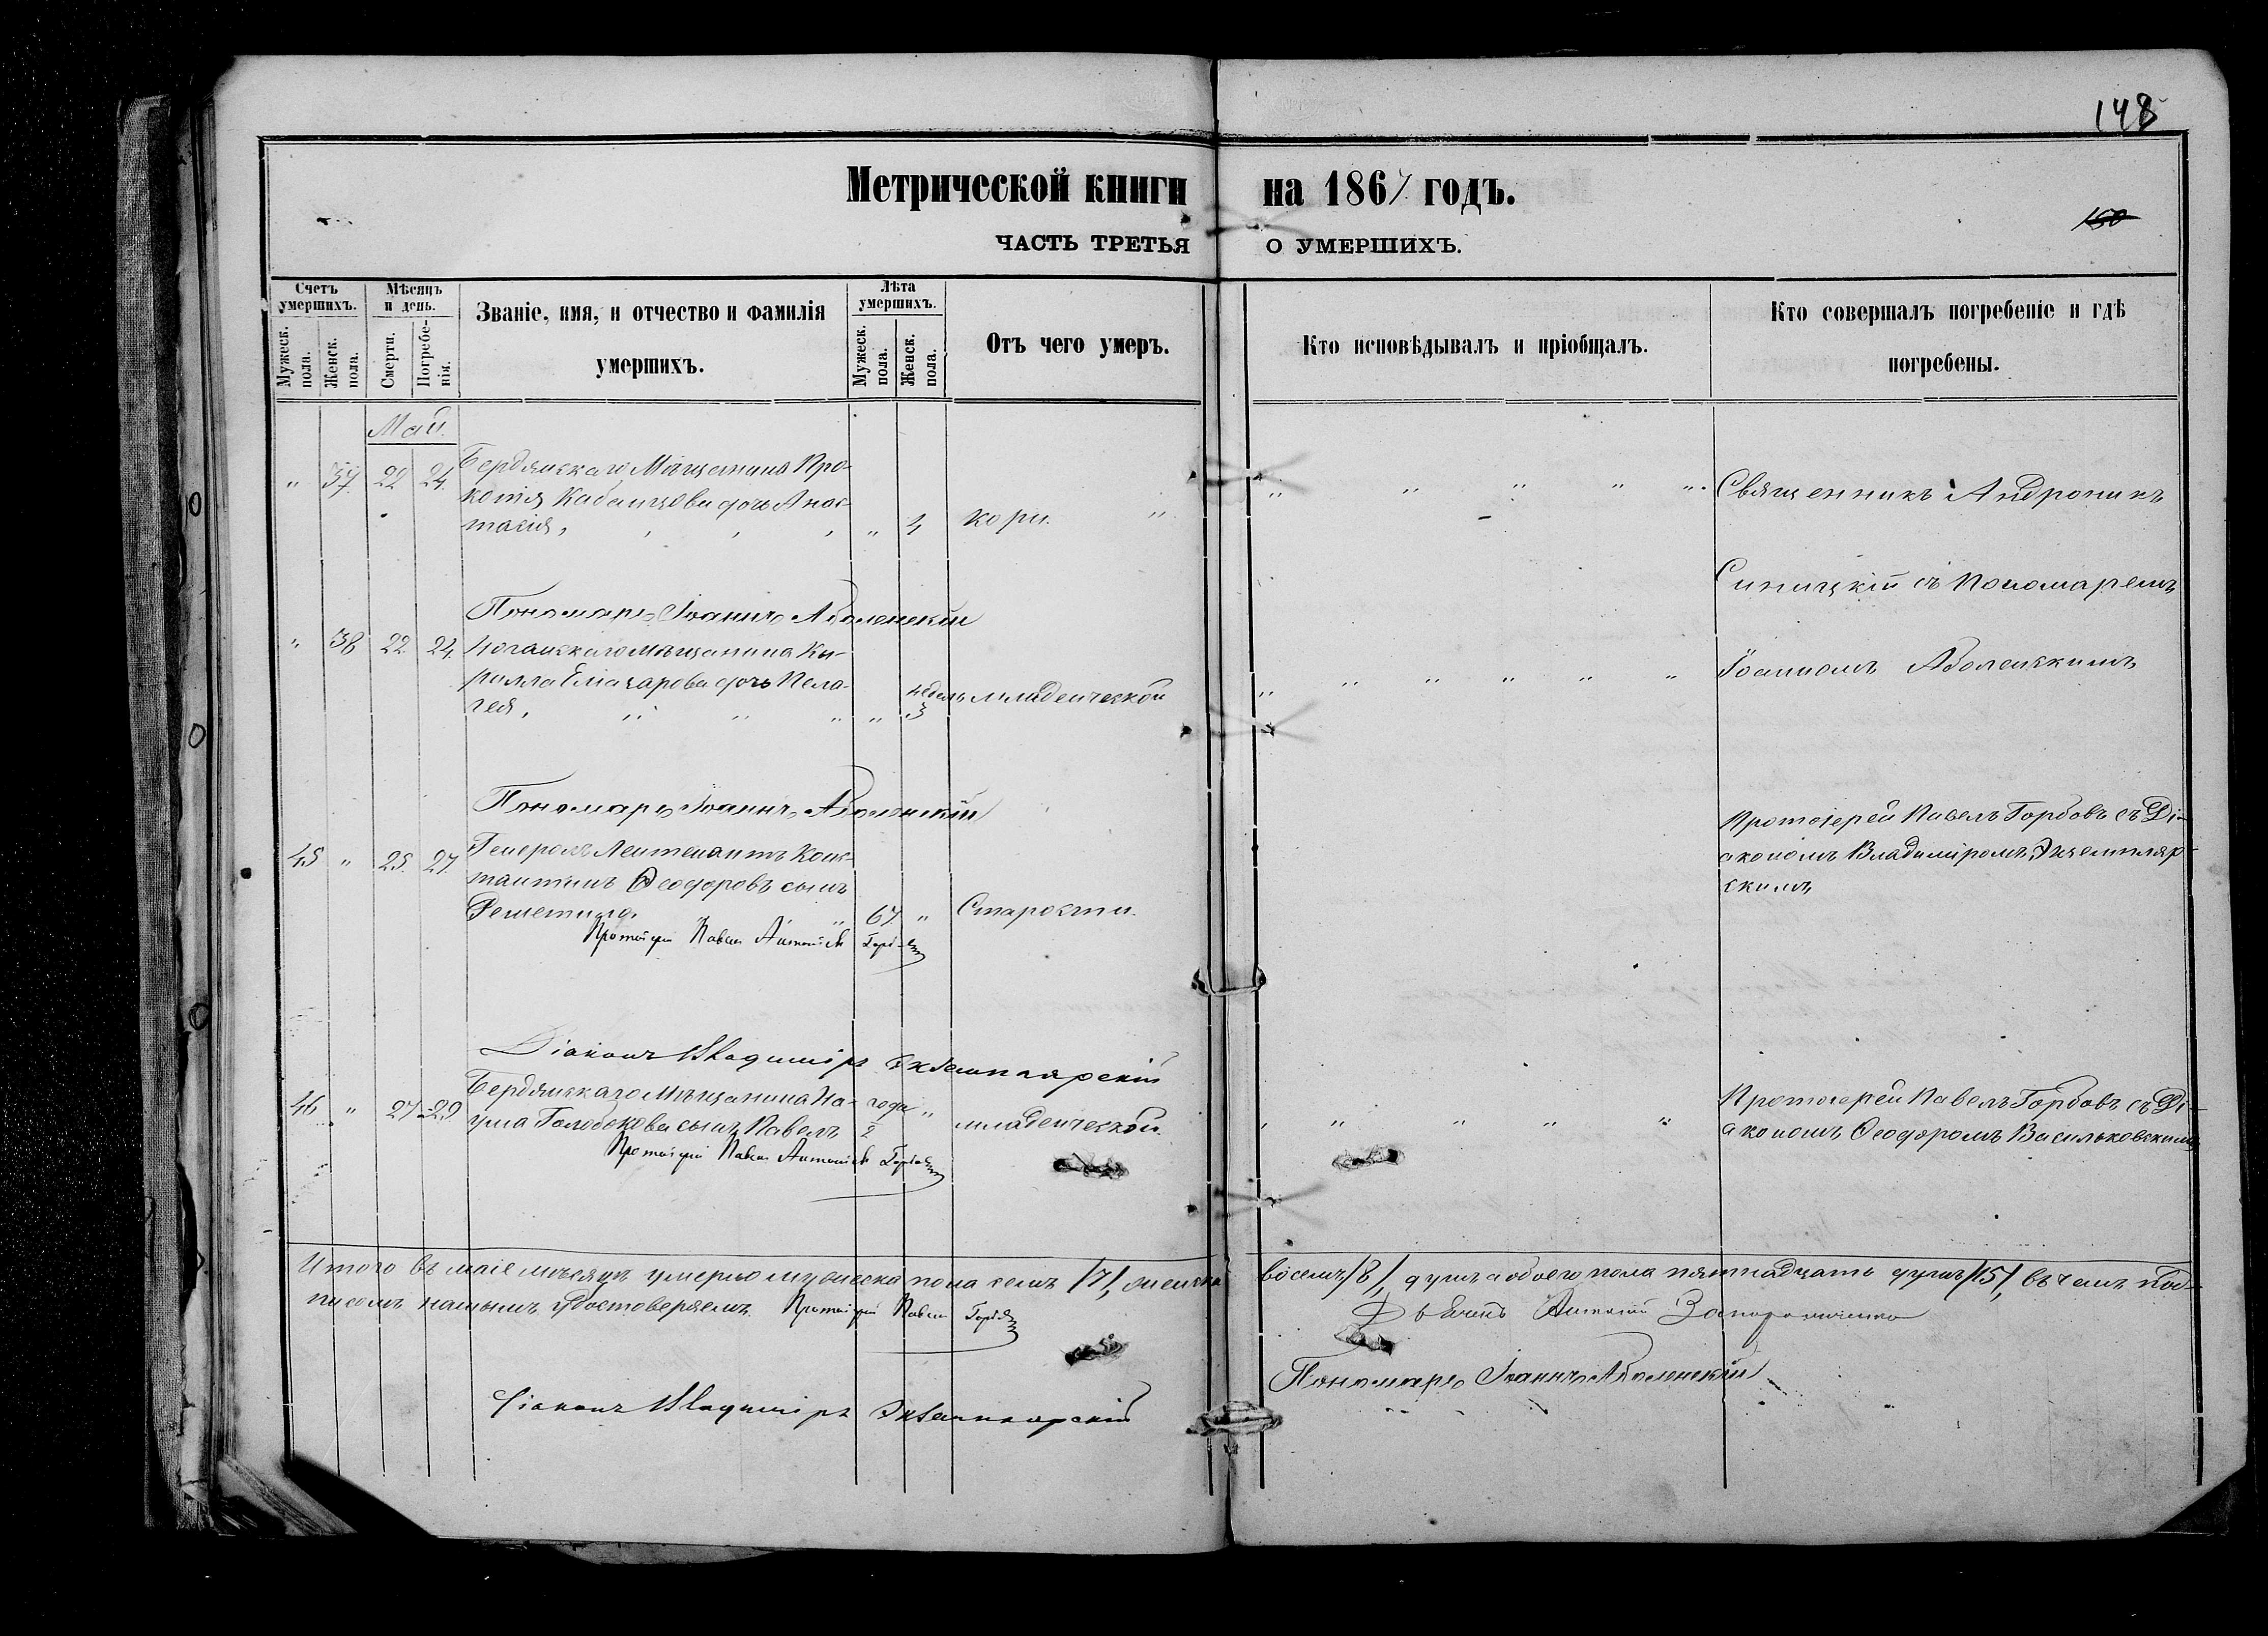 148
Метрической книги на 1867 годъ.
150
ЧАСТЬ ТРЕТЬЯ О УМЕРШИХЪ.
Счетъ умершихъ.
Мужеск. пола.
Женск. пола.
Мѣсяцъ и день.
Смерти.
Погребе-нія.
Званіе, имя, и отчество и фамилія
умершихъ.
Лѣта умершихъ.
Мужеск. пола.
Женск. пола.
Отъ чего умеръ.
Кто исповѣдывалъ и пріобщалъ.
Кто совершалъ погребеніе и гдѣ
погребены.
Май.
" 37. 22 24. Бердянскаго Мѣщанина Про-
кофія Кабанцова дочь Анас-
тасія, " 4 кори.
Священникъ Андроникъ
Синицкій съ Пономаремъ
Іоанномъ Аболенскимъ
Пономарь Іоаннъ Аболенскій
" 38 22. 24. Ногайскаго мѣщанина Ки-
рилла Елизарова дочь Пела-
гея, " недѣль 3 младенческой
Пономарь Іоаннъ Аболенскій
45 " 25. 27. Генералъ Лейтенантъ Конс-
тантинъ Ѳеодоровъ сынъ
67 " Старости.
Протоіерей Павелъ Горбовъ съ Ді-
акономъ Владиміромъ Экземпляр-
скимъ
Протоіерей Павелъ
Діаконъ Владиміръ Экземплярскій
46 " 27 29. Бердянскаго Мѣщанина На-
ума Голобокова сынъ Павелъ года 1/2 " младенческой.
Протоіерей Павелъ Горбовъ съ Ді-
акономъ Ѳеодоромъ Васильковскимъ
Протоіерей Павелъ
Итого въ маіѣ мѣсяцѣ умерло мужеска пола семь /7/, женска восемь /8/, душъ а обоего пола пятнадцать душъ /15/, въ чемъ под-
писомъ нашимъ удостоверяемъ. Протоіерей Павелъ
Діаконъ Владиміръ Экземплярскій
Пономарь Іоаннъ Аболенскій